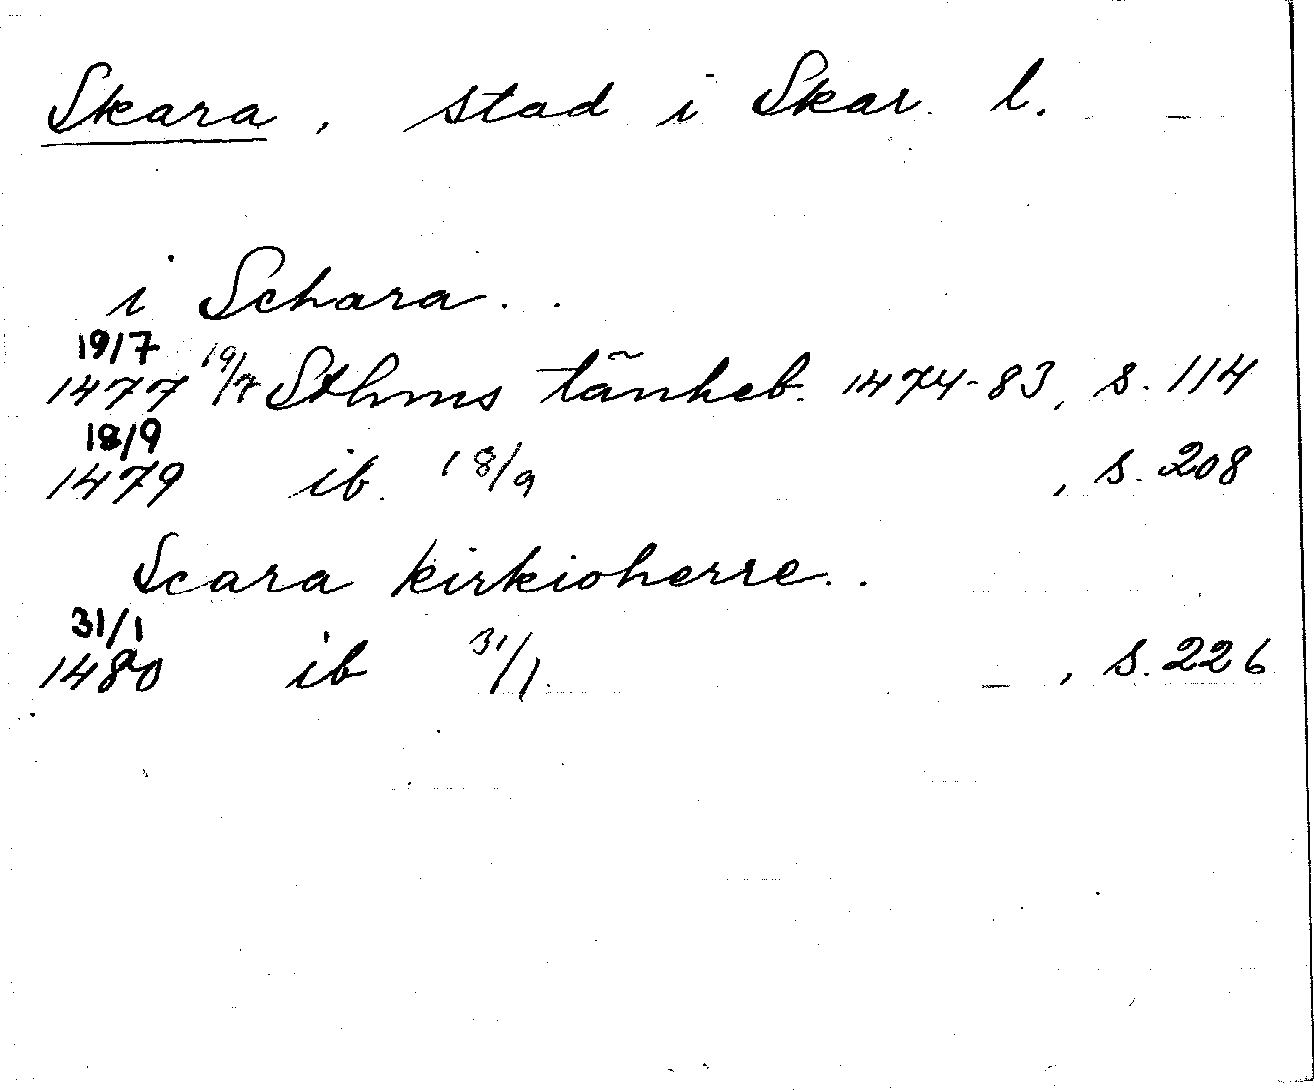 Skara, stad i Skar. l.
i Schara..
19/7
1477 19/7 Sthms tänkeb. 1474-83, s. 114
18/9
1479 ib. 18/9 , s. 208
Scara kirkioherre..
31/1
1480 ib 31/1 , s. 226